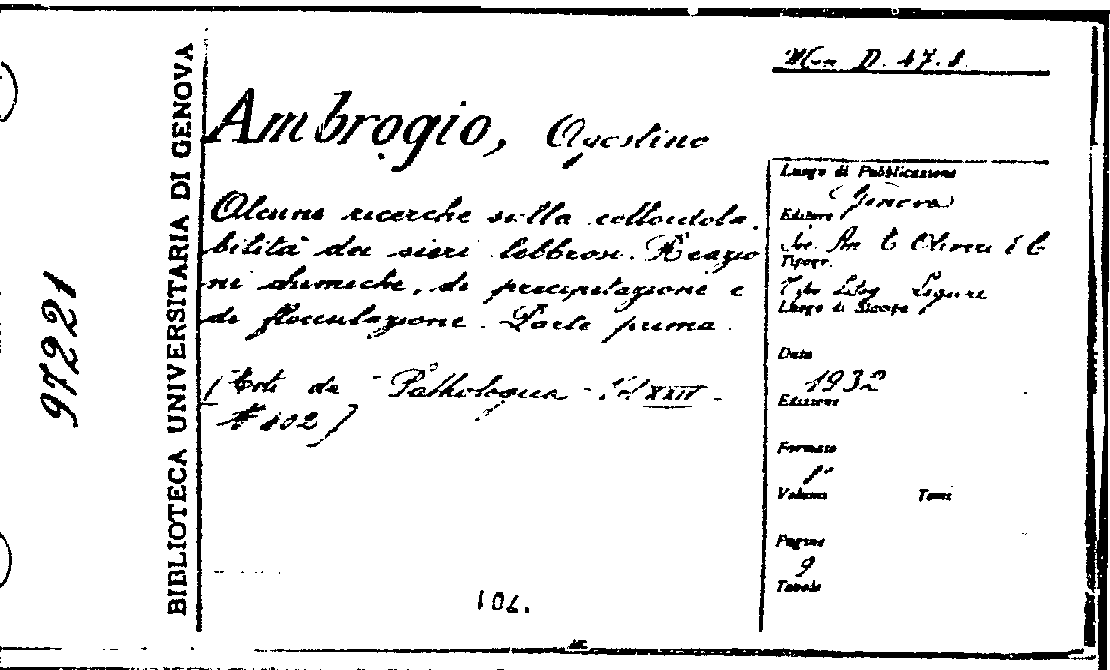 BIBLIOTECA UNIVERSITARIA DI GENOVA
97221
D. 47.8
Ambrogio, Agostino
Alcune ricerche sulla colloidola-
bilità dei sieri lebbrosi. Reazio
ni chimiche, di precipitazione e
di flocculazione. Parte prima.
(Estr. da "Pathologica" Vol XXIV
N 402)
104.
Luogo di Pubblicazione
Genova
Editore
Soc. An E. Olivieri & C
Tipogr.
Tipo Litog Ligure
Luogo di Stampa
Data
1932
Edizione
Formato
Volumi Tomi
Pagine
9
Tavole